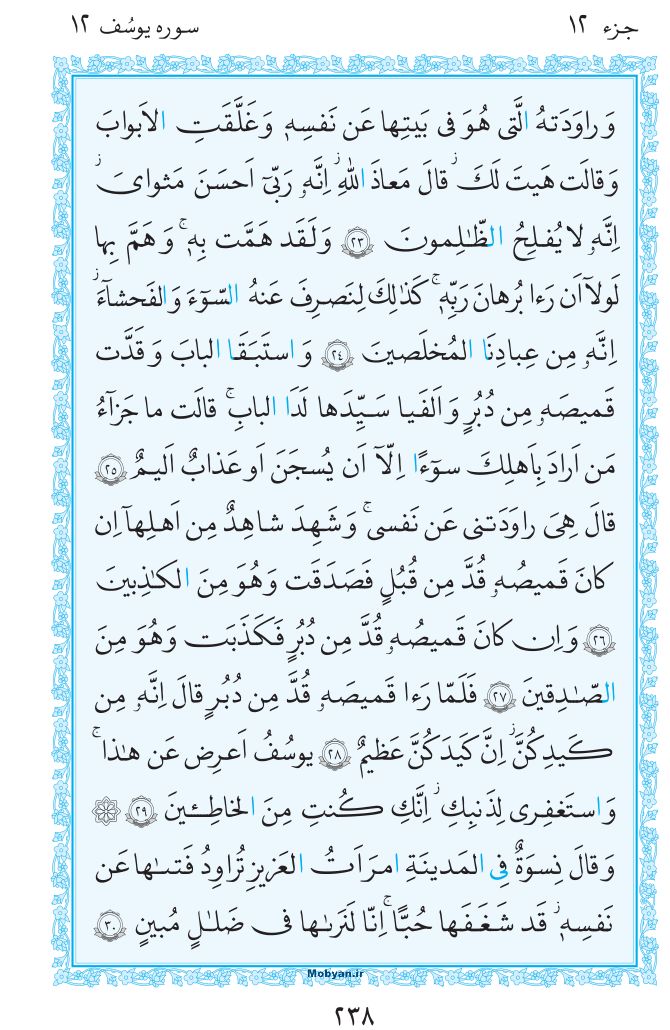 جزء ۱۲
سوره یوسُف ۱۲
وَ راوَدَتهُ الَّتی هُوَ فی بَیتِها عَن نَفسِهٖ وَ غَلَّقَتِ الاَبوابَ
وَ قالَت هَیتَ لَكَ ۚ قالَ مَعاذَ اللهِ ۖ اِنَّهٗ رَبّیٓ اَحسَنَ مَثوایَ ۖ
اِنَّهٗ لا یُفلِحُ الظّٰلِمونَ ﴿۲۳﴾ وَ لَقَد هَمَّت بِهٖ ۖ وَ هَمَّ بِها
لَولآ اَن رَءا بُرهانَ رَبِّهٖ ۚ كَذٰلِكَ لِنَصرِفَ عَنهُ السّوٓءَ وَ الفَحشآءَ ۚ
اِنَّهٗ مِن عِبادِنَا المُخلَصینَ ﴿۲۴﴾ وَ استَبَقَا البابَ وَ قَدَّت
قَمیصَهٗ مِن دُبُرٍ وَ اَلفَیا سَیِّدَها لَدَا البابِ ۚ قالَت ما جَزآءُ
مَن اَرادَ بِاَهلِكَ سوٓءًا اِلّآ اَن یُسجَنَ اَو عَذابٌ اَلیمٌ ﴿۲۵﴾
قالَ هِیَ راوَدَتنی عَن نَفسی ۚ وَ شَهِدَ شاهِدٌ مِن اَهلِهآ اِن
كانَ قَمیصُهٗ قُدَّ مِن قُبُلٍ فَصَدَقَت وَ هُوَ مِنَ الكٰذِبینَ
﴿۲۶﴾ وَ اِن كانَ قَمیصُهٗ قُدَّ مِن دُبُرٍ فَكَذَبَت وَ هُوَ مِنَ
الصّٰدِقینَ ﴿۲۷﴾ فَلَمّا رَءا قَمیصَهٗ قُدَّ مِن دُبُرٍ قالَ اِنَّهٗ مِن
كَیدِكُنَّ ۖ اِنَّ كَیدَكُنَّ عَظیمٌ ﴿۲۸﴾ یوسُفُ اَعرِض عَن هٰذا ۚ
وَ استَغفِری لِذَنبِكِ ۖ اِنَّكِ كُنتِ مِنَ الخاطِـٔینَ ﴿۲۹﴾
وَ قالَ نِسوَةٌ فِی المَدینَةِ امرَاَتُ العَزیزِ تُراوِدُ فَتىٰها عَن
نَفسِهٖ ۖ قَد شَغَفَها حُبًّا ۖ اِنّا لَنَرىٰها فی ضَلٰلٍ مُبینٍ ﴿۳۰﴾
Mobyan.ir
۲۳۸